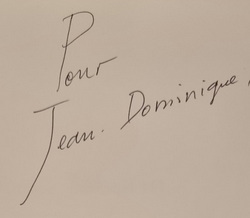 Pour
Jean. Dominique,